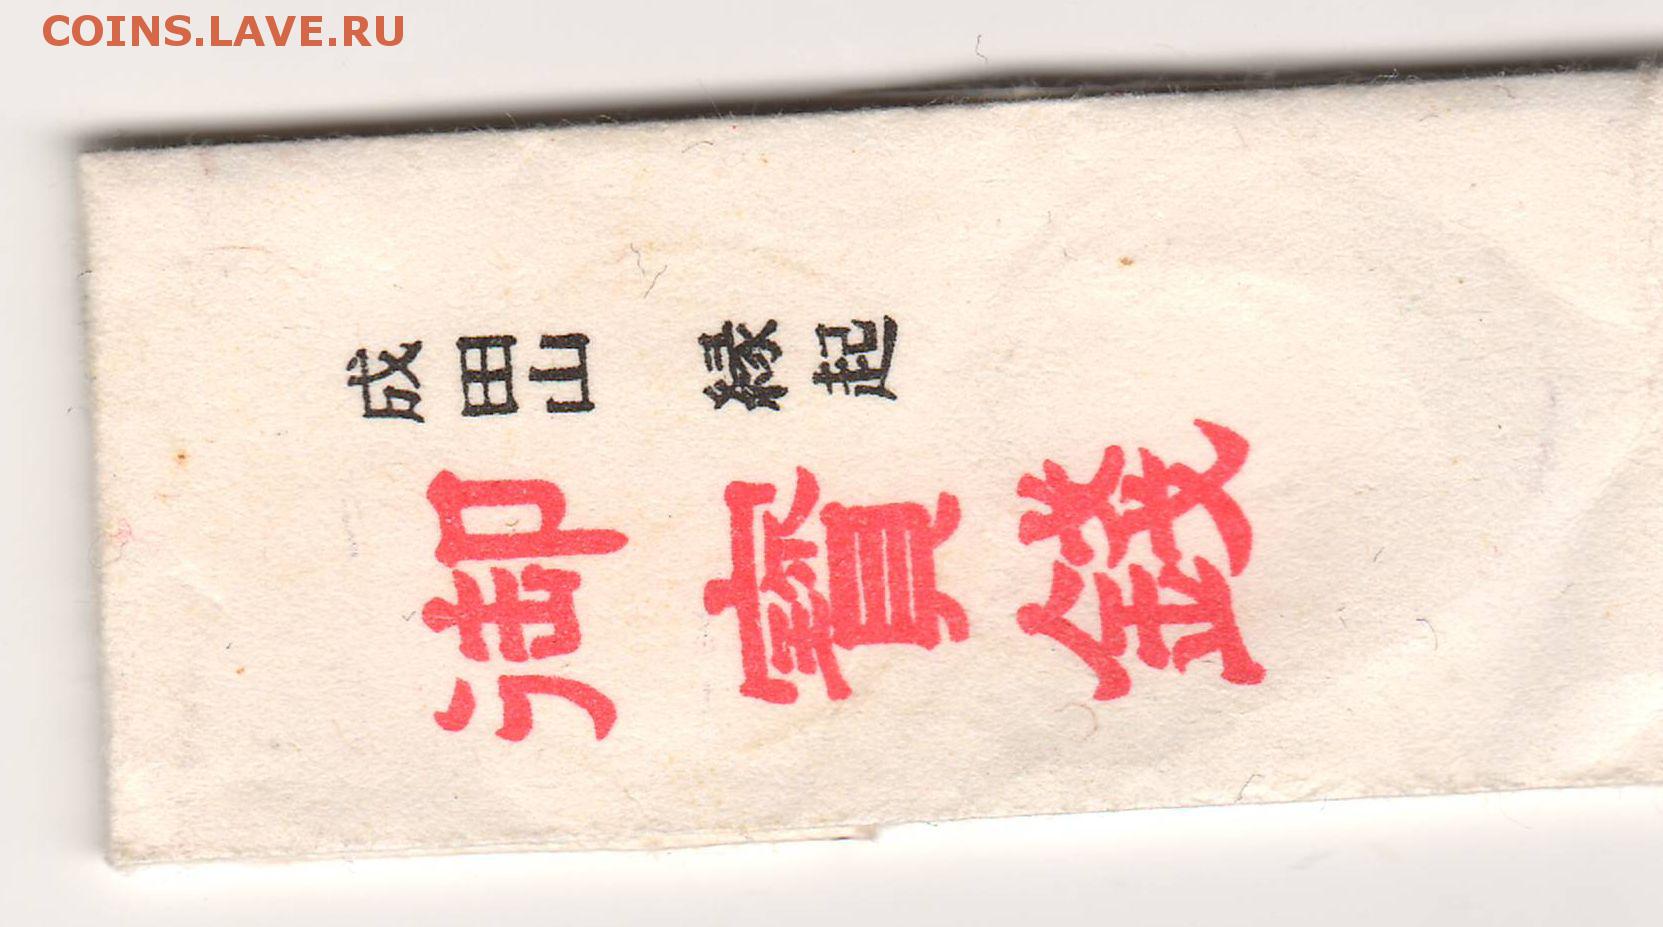 COINS.LAVE.RU
成田山 縁起
御寶錢